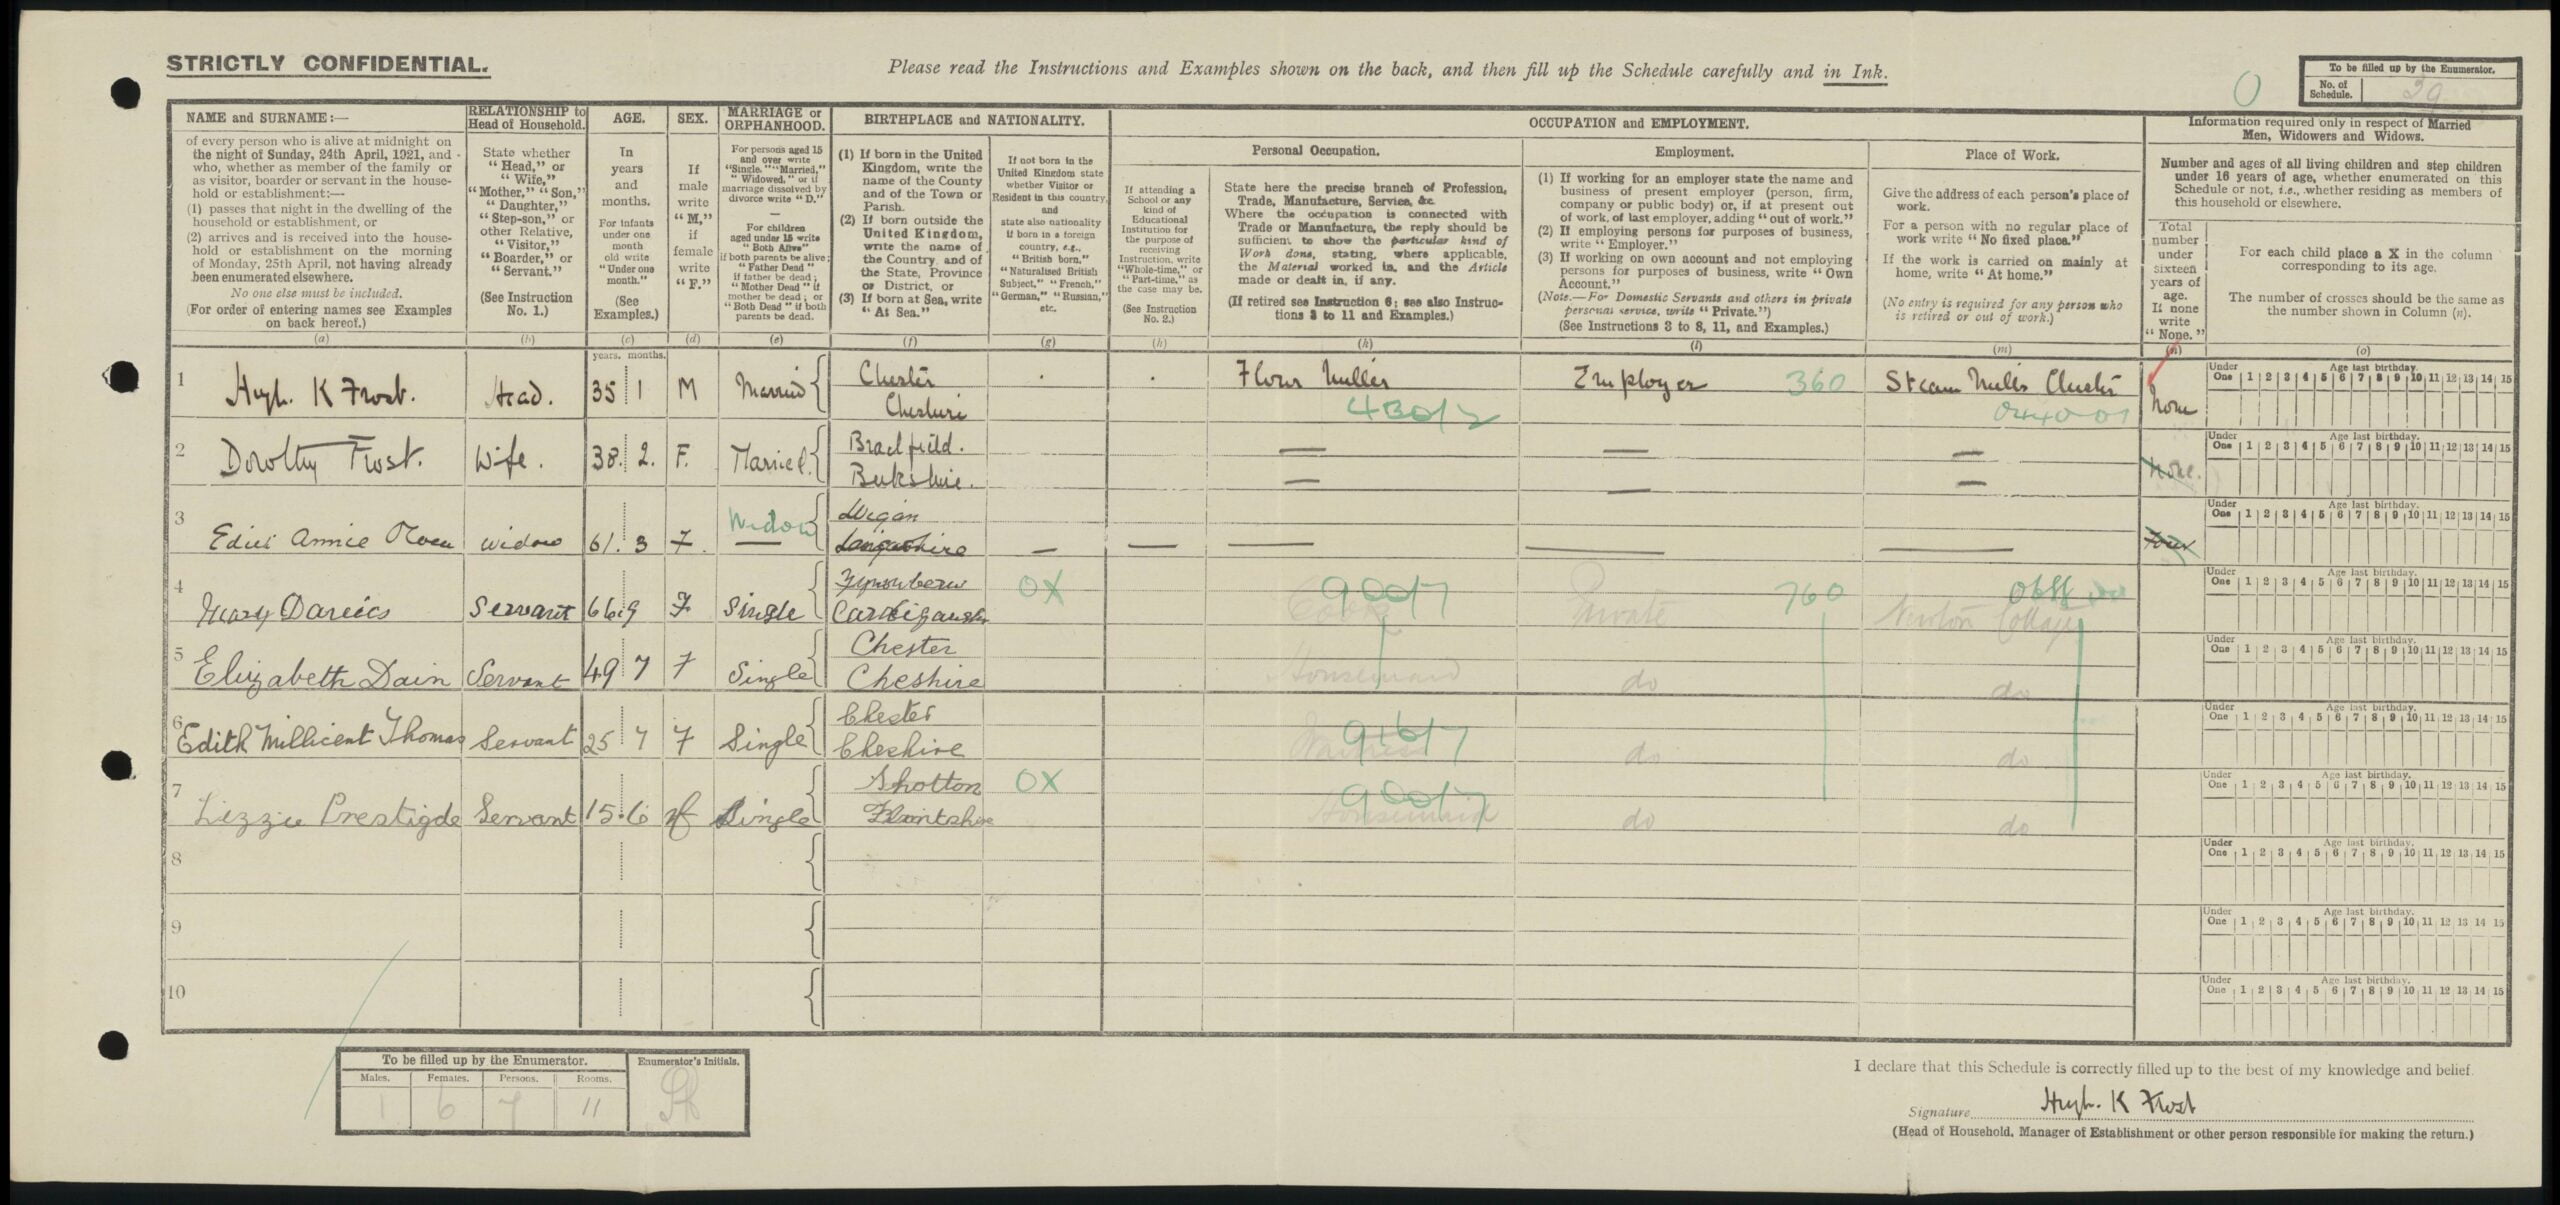 STRICTLY CONFIDENTIAL.
Please read the Instructions and Examples shown on the back, and then fill up the Schedule carefully and in Ink.
To be filled up by the Enumerator.
No. of Schedule. 29
0
NAME and SURNAME:—
of every person who is alive at midnight on
the night of Sunday, 24th April, 1921, and
who, whether as member of the family or
as visitor, boarder or servant in the house-
hold or establishment:—
(1) passes that night in the dwelling of the
household or establishment, or
(2) arrives and is received into the house-
hold or establishment on the morning
of Monday, 25th April, not having already
been enumerated elsewhere.
No one else must be included.
(For order of entering names see Examples
on back hereof.)
(a)
RELATIONSHIP to
Head of Household.
State whether
"Head," or
"Wife,"
"Mother," "Son,"
"Daughter,"
"Step-son," or
other Relative,
"Visitor,"
"Boarder," or
"Servant."
(See Instruction
No. 1.)
(b)
AGE.
In
years
and
months.
For infants
under one
month
old write
"Under one
month."
(See
Examples.)
(c)
SEX.
If
male
write
"M,"
if
female
write
"F."
(d)
MARRIAGE or
ORPHANHOOD.
For persons aged 15
and over write
"Single," "Married,"
"Widowed," or if
marriage dissolved by
divorce write "D."
—
For children
aged under 15 write
"Both Alive"
if both parents be alive;
"Father Dead"
if father be dead;
"Mother Dead" if
mother be dead; or
"Both Dead" if both
parents be dead.
(e)
BIRTHPLACE and NATIONALITY.
(1) If born in the United
Kingdom, write the
name of the County
and of the Town or
Parish.
(2) If born outside the
United Kingdom,
write the name of
the Country, and of
the State, Province
or District, or
(3) If born at Sea, write
"At Sea."
(f)
If not born in the
United Kingdom state
whether Visitor or
Resident in this country,
and
state also nationality
if born in a foreign
country, e.g.,
"British born,"
"Naturalised British
Subject," "French,"
"German," "Russian,"
etc.
(g)
OCCUPATION and EMPLOYMENT.
If attending a
School or any
kind of
Educational
Institution for
the purpose of
receiving
Instruction, write
"Whole-time," or
"Part-time," as
the case may be.
(See Instruction
No. 2.)
(h)
Personal Occupation.
State here the precise branch of Profession,
Trade, Manufacture, Service, &c.
Where the occupation is connected with
Trade or Manufacture, the reply should be
sufficient to show the particular kind of
Work done, stating, where applicable,
the Material worked in, and the Article
made or dealt in, if any.
(If retired see Instruction 6; see also Instruc-
tions 3 to 11 and Examples.)
(k)
Employment.
(1) If working for an employer state the name and
business of present employer (person, firm,
company or public body) or, if at present out
of work, of last employer, adding "out of work."
(2) If employing persons for purposes of business,
write "Employer."
(3) If working on own account and not employing
persons for purposes of business, write "Own
Account."
(Note.—For Domestic Servants and others in private
personal service, write "Private.")
(See Instructions 3 to 8, 11, and Examples.)
(l)
Place of Work.
Give the address of each person's place of
work.
For a person with no regular place of
work write "No fixed place."
If the work is carried on mainly at
home, write "At home."
(No entry is required for any person who
is retired or out of work.)
(m)
Information required only in respect of Married
Men, Widowers and Widows.
Number and ages of all living children and step children
under 16 years of age, whether enumerated on this
Schedule or not, i.e., whether residing as members of
this household or elsewhere.
Total
number
under
sixteen
years of
age.
If none
write
"None."
(n)
For each child place a X in the column
corresponding to its age.
The number of crosses should be the same as
the number shown in Column (n).
(o)
years. months.
1 Hugh. K Frost. Head. 35 1 M Married Chester Cheshire Flour Miller 430/2 Employer 360 Steam Mills Chester None
Under One Age last birthday. 1 2 3 4 5 6 7 8 9 10 11 12 13 14 15
2 Dorothy Frost. Wife. 38. 2. F. Married. Bradfield. Berkshire. — — — — — — None.
Under One Age last birthday. 1 2 3 4 5 6 7 8 9 10 11 12 13 14 15
3 Edith Annie Owen widow 61. 3 F. Widow — Wigan Lancashire — — — — — Four
Under One Age last birthday. 1 2 3 4 5 6 7 8 9 10 11 12 13 14 15
4 Mary Davies Servant 66 9 F Single Cardiganshire OX Cook 900/7 Private 760 Newton Cottage
Under One Age last birthday. 1 2 3 4 5 6 7 8 9 10 11 12 13 14 15
5 Elizabeth Dain Servant 49 7 F Single Chester Cheshire Housemaid do do
Under One Age last birthday. 1 2 3 4 5 6 7 8 9 10 11 12 13 14 15
6 Edith Millicent Thomas Servant 25 7 F Single Chester Cheshire Waitress 916/7 do do
Under One Age last birthday. 1 2 3 4 5 6 7 8 9 10 11 12 13 14 15
7 Lizzie Prestigde Servant 15. 6 f Single Shotton Flintshire OX Housemaid 900/7 do do
Under One Age last birthday. 1 2 3 4 5 6 7 8 9 10 11 12 13 14 15
8
Under One Age last birthday. 1 2 3 4 5 6 7 8 9 10 11 12 13 14 15
9
Under One Age last birthday. 1 2 3 4 5 6 7 8 9 10 11 12 13 14 15
10
Under One Age last birthday. 1 2 3 4 5 6 7 8 9 10 11 12 13 14 15
To be filled up by the Enumerator.
Males. Females. Persons. Rooms.
1 6 7 11
Enumerator's Initials.
I declare that this Schedule is correctly filled up to the best of my knowledge and belief.
Signature Hugh. K Frost
(Head of Household, Manager of Establishment or other person responsible for making the return.)